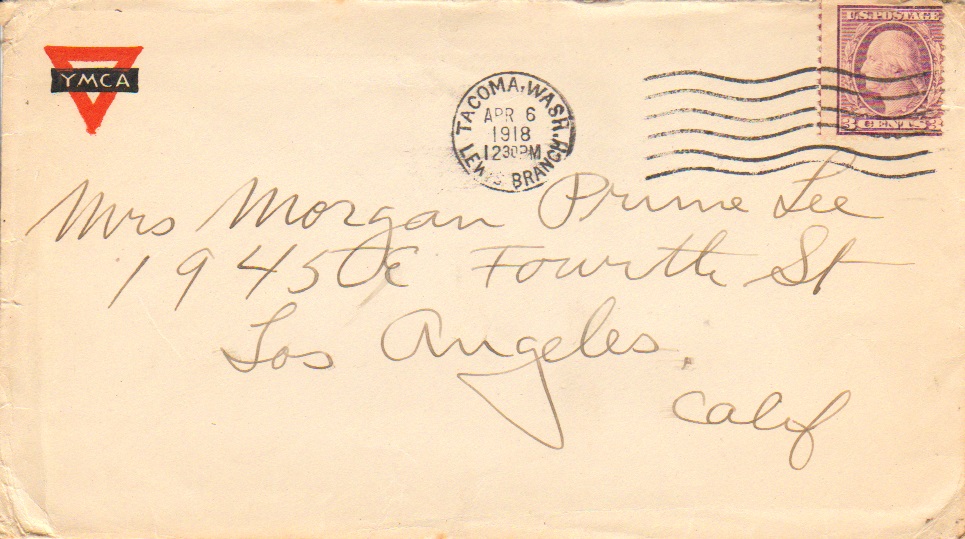 YMCA
TACOMA, WASH.
APR 6
1918
1230PM
LEWIS BRANCH
U.S. POSTAGE
3 CENTS 3
Mrs Morgan Prime Lee
1945 E Fourth St
Los Angeles,
Calif